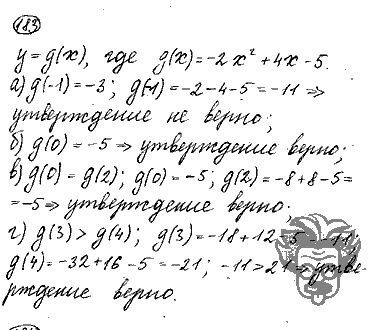 183
y = g(x), где g(x) = -2x² + 4x - 5.
а) g(-1) = -3; g(-1) = -2 - 4 - 5 = -11 ⇒
утверждение не верно;
б) g(0) = -5 ⇒ утверждение верно;
в) g(0) = g(2); g(0) = -5; g(2) = -8 + 8 - 5 =
= -5 ⇒ утверждение верно;
г) g(3) > g(4); g(3) = -18 + 12 - 5 = -11;
g(4) = -32 + 16 - 5 = -21; -11 > 21 ⇒ утве-
рждение верно.